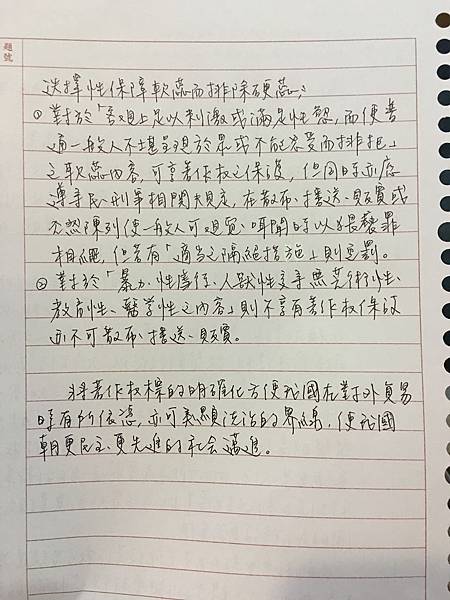 題號
選擇性保障軟蕊而排除硬蕊:
① 對於「客觀上足以刺激或滿足性慾,而使普
通一般人不堪呈現於眾或不能忍受而排拒」
之軟蕊內容,可享著作权之保護,但同時亦應
遵守民、刑等相關規定,在散布、播送、販賣或
公然陳列使一般人可觀覽、耳聞時以猥褻罪
相繩,但若有「適当之隔絕措施」則不罰。
② 對於「暴力、性虐待、人獸性交等無芸術性、
教育性、醫學性之內容」則不享有著作权保護
亦不可散布、播送、販賣。
將著作权標的明確化方便我國在對外貿易
時有所依憑,亦可彰顯法治的界線,使我國
朝更民主、更先進的社会邁進。